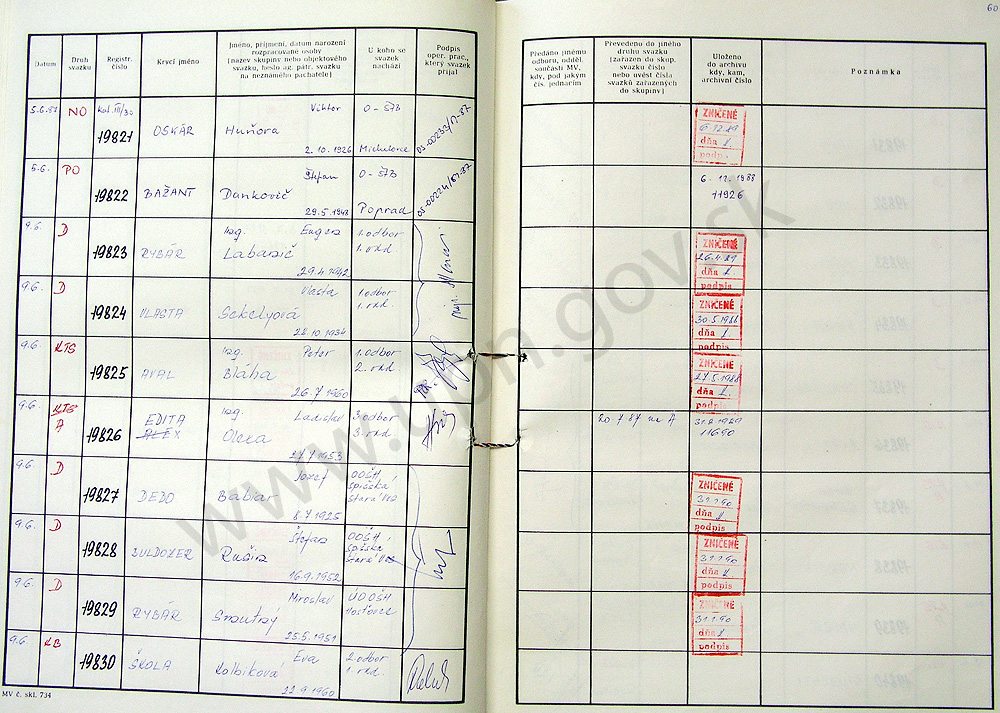 60
Datum
Druh svazku
Registr. číslo
Krycí jméno
Jméno, příjmení, datum narození
rozpracované osoby
(název skupiny nebo objektového
svazku, heslo ag. pátr. svazku
na neznámého pachatele)
U koho se
svazek
nachází
Podpis
oper. prac.,
který svazek
přijal
Předáno jinému
odboru, odděl.
součásti MV,
kdy, pod jakým
čís. jednacím
Převedeno do jiného
druhu svazku
(zařazen do skup.
svazku číslo
nebo uvést čísla
svazků zařazených
do skupiny)
Uloženo
do archivu
kdy, kam,
archivní číslo
Poznámka
5.6.87 NO 19821 OSKÁR Viktor Huňora 2.10.1926 O-ŠTB Michalovce
ZNIČENÉ
dňa
podp.
5.6. PO 19822 BAŽANT Štefan Dankovič 29.5.1943 O-ŠTB Poprad
6.12.1988
11926
9.6. D 19823 RYBÁR Ing. Eugen 29.4.1942 1.odbor 1.odd.
ZNIČENÉ
26.4.89
dňa
podpis
9.6. D 19824 VLASTA Vlasta Sekelyová 28.10.1934 1.odbor 1.odd.
ZNIČENÉ
30.5.1988
dňa
podpis
9.6. KTS 19825 AVAL Ing. Peter Bláha 26.7.1960 1.odbor 2.odd.
ZNIČENÉ
27.5.1988
dňa
podpis
9.6. KTS A 19826 EDITA ALEX Ing. Ladislav 1953 3.odbor 3.odd.
20.7.87 na A
11690
9.6. D 19827 DEDO Jozef Babiar 8.7.1925 OOŠH Spišská Stará Ves
ZNIČENÉ
3.1.90
dňa
podpis
9.6. D 19828 BULDOZER Štefan 16.9.1952 OOŠH Spišská Stará Ves
ZNIČENÉ
3.1.90
dňa
podpis
9.6. D 19829 RYBÁR Miroslav Smutný 25.5.1951
ZNIČENÉ
3.1.90
dňa
podpis
9.6. KB 19830 ŠKOLA Eva Kolbiková 22.9.1960 2.odbor 1.odd.
MV č. skl. 734
www.upn.gov.sk